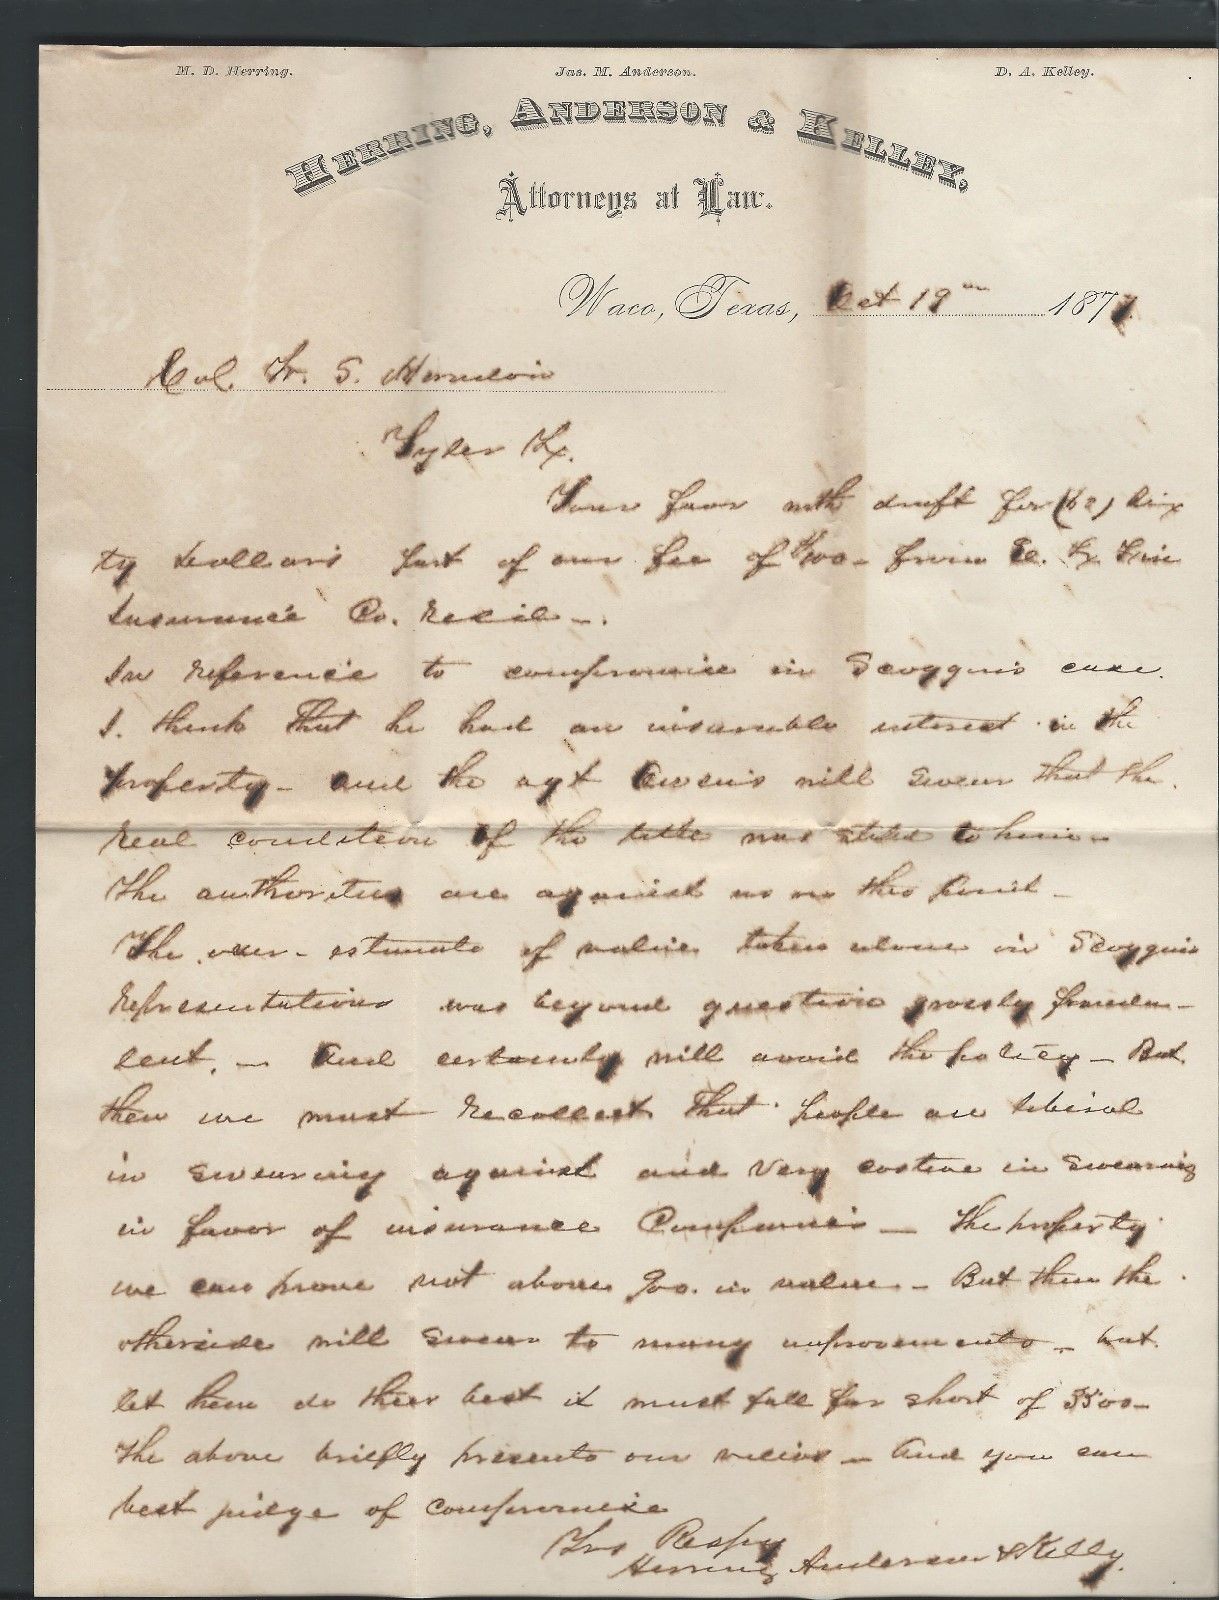 M. D. Herring. Jas. M. Anderson. D. A. Kelley.
HERRING, ANDERSON & KELLEY,
Attorneys at Law.
Waco, Texas, Oct 19th 1877.
Col. W. S. Herndon
Tyler Tx.
Your favor with draft for (60) Six
ty dollars part of our fee of from E. Tx Fire
Insurance Co. Recd -.
In reference to compromise in Scoggins case.
I think that he had an insurable interest in the
property - and the agt Owens will swear that the
real condition of the title was stated to him -
The authorities are against us on this point -
The over-estimate of value taken alone in Scoggins
representations was beyond question grossly fraudu-
lent. - And certainly will avoid the policy - But
then we must recollect that people are liberal
in swearing against and very costive in swearing
in favor of insurance Companies - The property
we can prove not above 900. in value - But then the
otherside will swear to many improvements - but
let them do their best it must fall far short of 3500 -
The above briefly presents our views - And you can
best judge of compromise
Yrs Respy
Herring Anderson & Kelly.